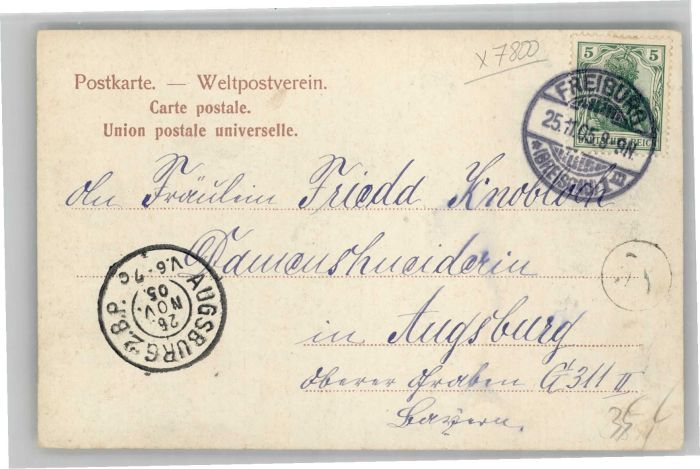 x 7800
5 5
DEUTSCHES REICH
FREIBURG
25.11.05.8-9N.
*(BREISGAU) B
Postkarte. — Weltpostverein.
Carte postale.
Union postale universelle.
An Fräulein Frieda Knobloch
Damenshneiderin
in Augsburg
Oberer Graben G 311 II
Bayern.
AUGSBURG 2.B.P.
26.
NOV.
05
V.6-7